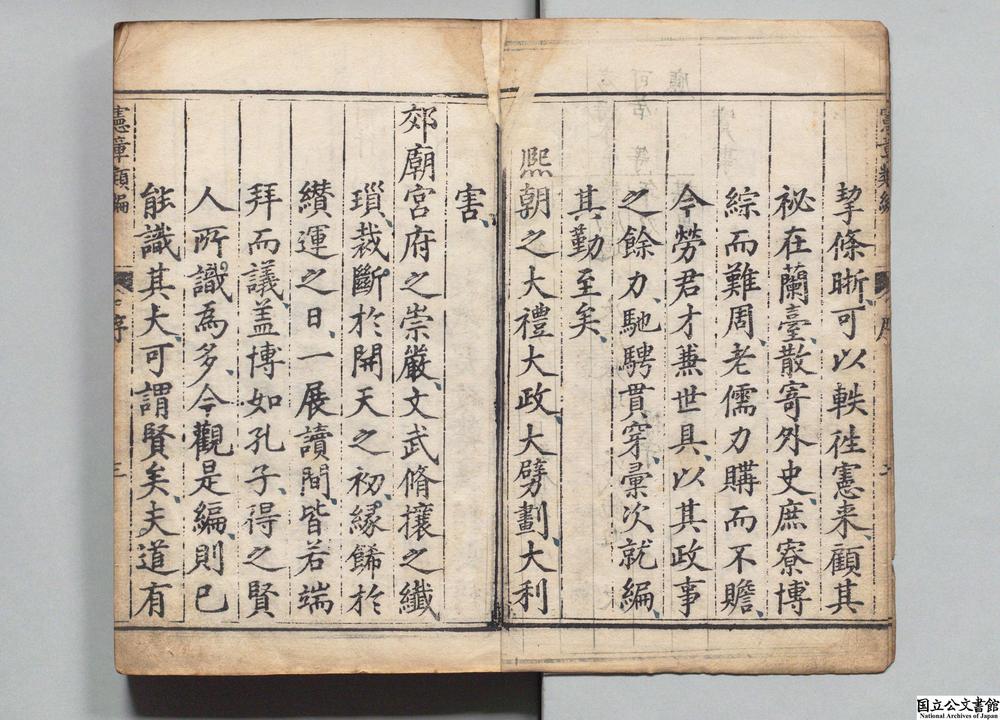 挈條晰、可以軼徃憲来、顧其
祕在蘭臺、散寄外史、庶寮博
綜而難周、老儒力購而不贍、
今勞君才兼世具、以其政事
之餘力、馳騁貫穿、彙次就編、
其勤至矣、
熙朝之大禮大政、大劈劃、大利
害、
郊廟宮府之崇嚴、文武脩攘之纖
瑣、裁斷於開天之初、緣餙於
纉運之日、一展讀間、皆若端
拜而議、盖博如孔子、得之賢
人所識爲多、今觀是編、則已
能識其大、可謂賢矣、夫道有
憲章類編
序
三
憲章類編
序
国立公文書館
National Archives of Japan